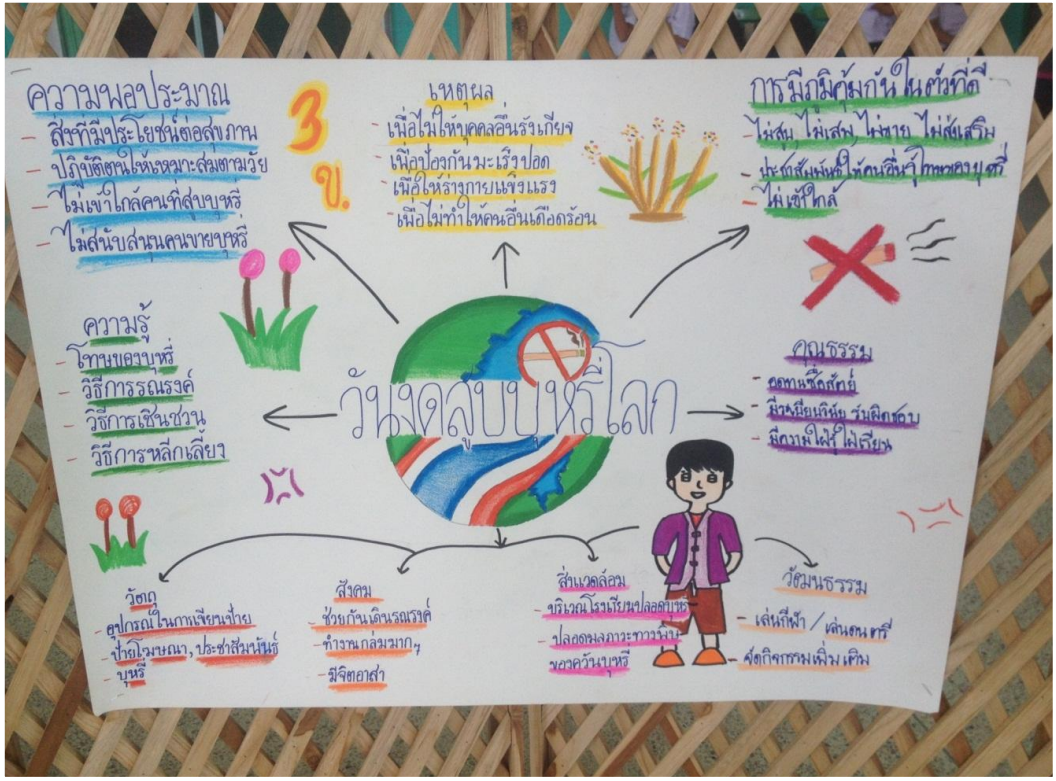 ความพอประมาณ
- สิ่งที่มีประโยชน์ต่อสุขภาพ
- ปฏิบัติตนให้เหมาะสมตามวัย
- ไม่เข้าใกล้คนที่สูบบุหรี่
- ไม่สนับสนุนคนขายบุหรี่
3 ข.
เหตุผล
- เพื่อไม่ให้บุคคลอื่นรังเกียจ
- เพื่อป้องกันมะเร็งปอด
- เพื่อให้ร่างกายแข็งแรง
- เพื่อไม่ทำให้คนอื่นเดือดร้อน
การมีภูมิคุ้มกันในตัวที่ดี
- ไม่สูบ ไม่เสพ ไม่ขาย ไม่ส่งเสริม
- ประชาสัมพันธ์ให้คนอื่นรู้โทษของบุหรี่
- ไม่เข้าใกล้
ความรู้
- โทษของบุหรี่
- วิธีการรณรงค์
- วิธีการเชิญชวน
- วิธีการหลีกเลี้ยง
วันงดสูบบุหรี่โลก
คุณธรรม
- อดทนซื่อสัตย์
- มีระเบียบวินัย รับผิดชอบ
- มีความใฝ่รู้ใฝ่เรียน
วัตถุ
- อุปกรณ์ในการเขียนป้าย
- ป้ายโฆษณา, ประชาสัมพันธ์
- บุหรี่
สังคม
- ช่วยกันเดินรณรงค์
- ทำงานกลุ่มมากๆ
- มีจิตอาสา
สิ่งแวดล้อม
- บริเวณโรงเรียนปลอดบุหรี่
- ปลอดมลภาวะทางพิษ
ของควันบุหรี่
วัฒนธรรม
- เล่นกีฬา / เล่นดนตรี
- จัดกิจกรรมเพิ่มเติม